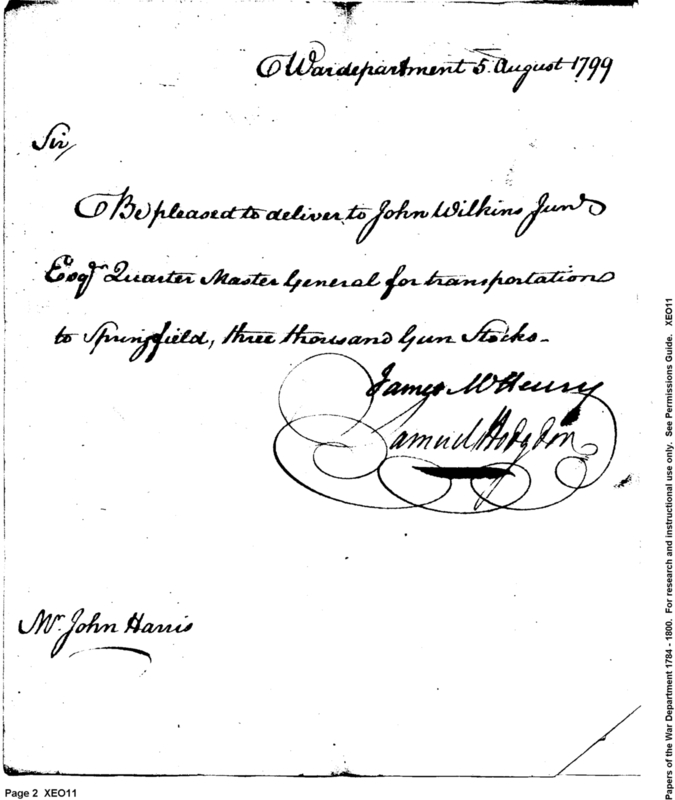 Wardepartment 5. August 1799
Sir,
Be pleased to deliver to John Wilkins Junr
Esqr Quarter Master General for transportation
to Springfield, three thousand Gun Stocks.
James McHenry
Samuel Hodgdon
Mr. John Harris
Page 2 XEO11
Papers of the War Department 1784 - 1800. For research and instructional use only. See Permissions Guide. XEO11